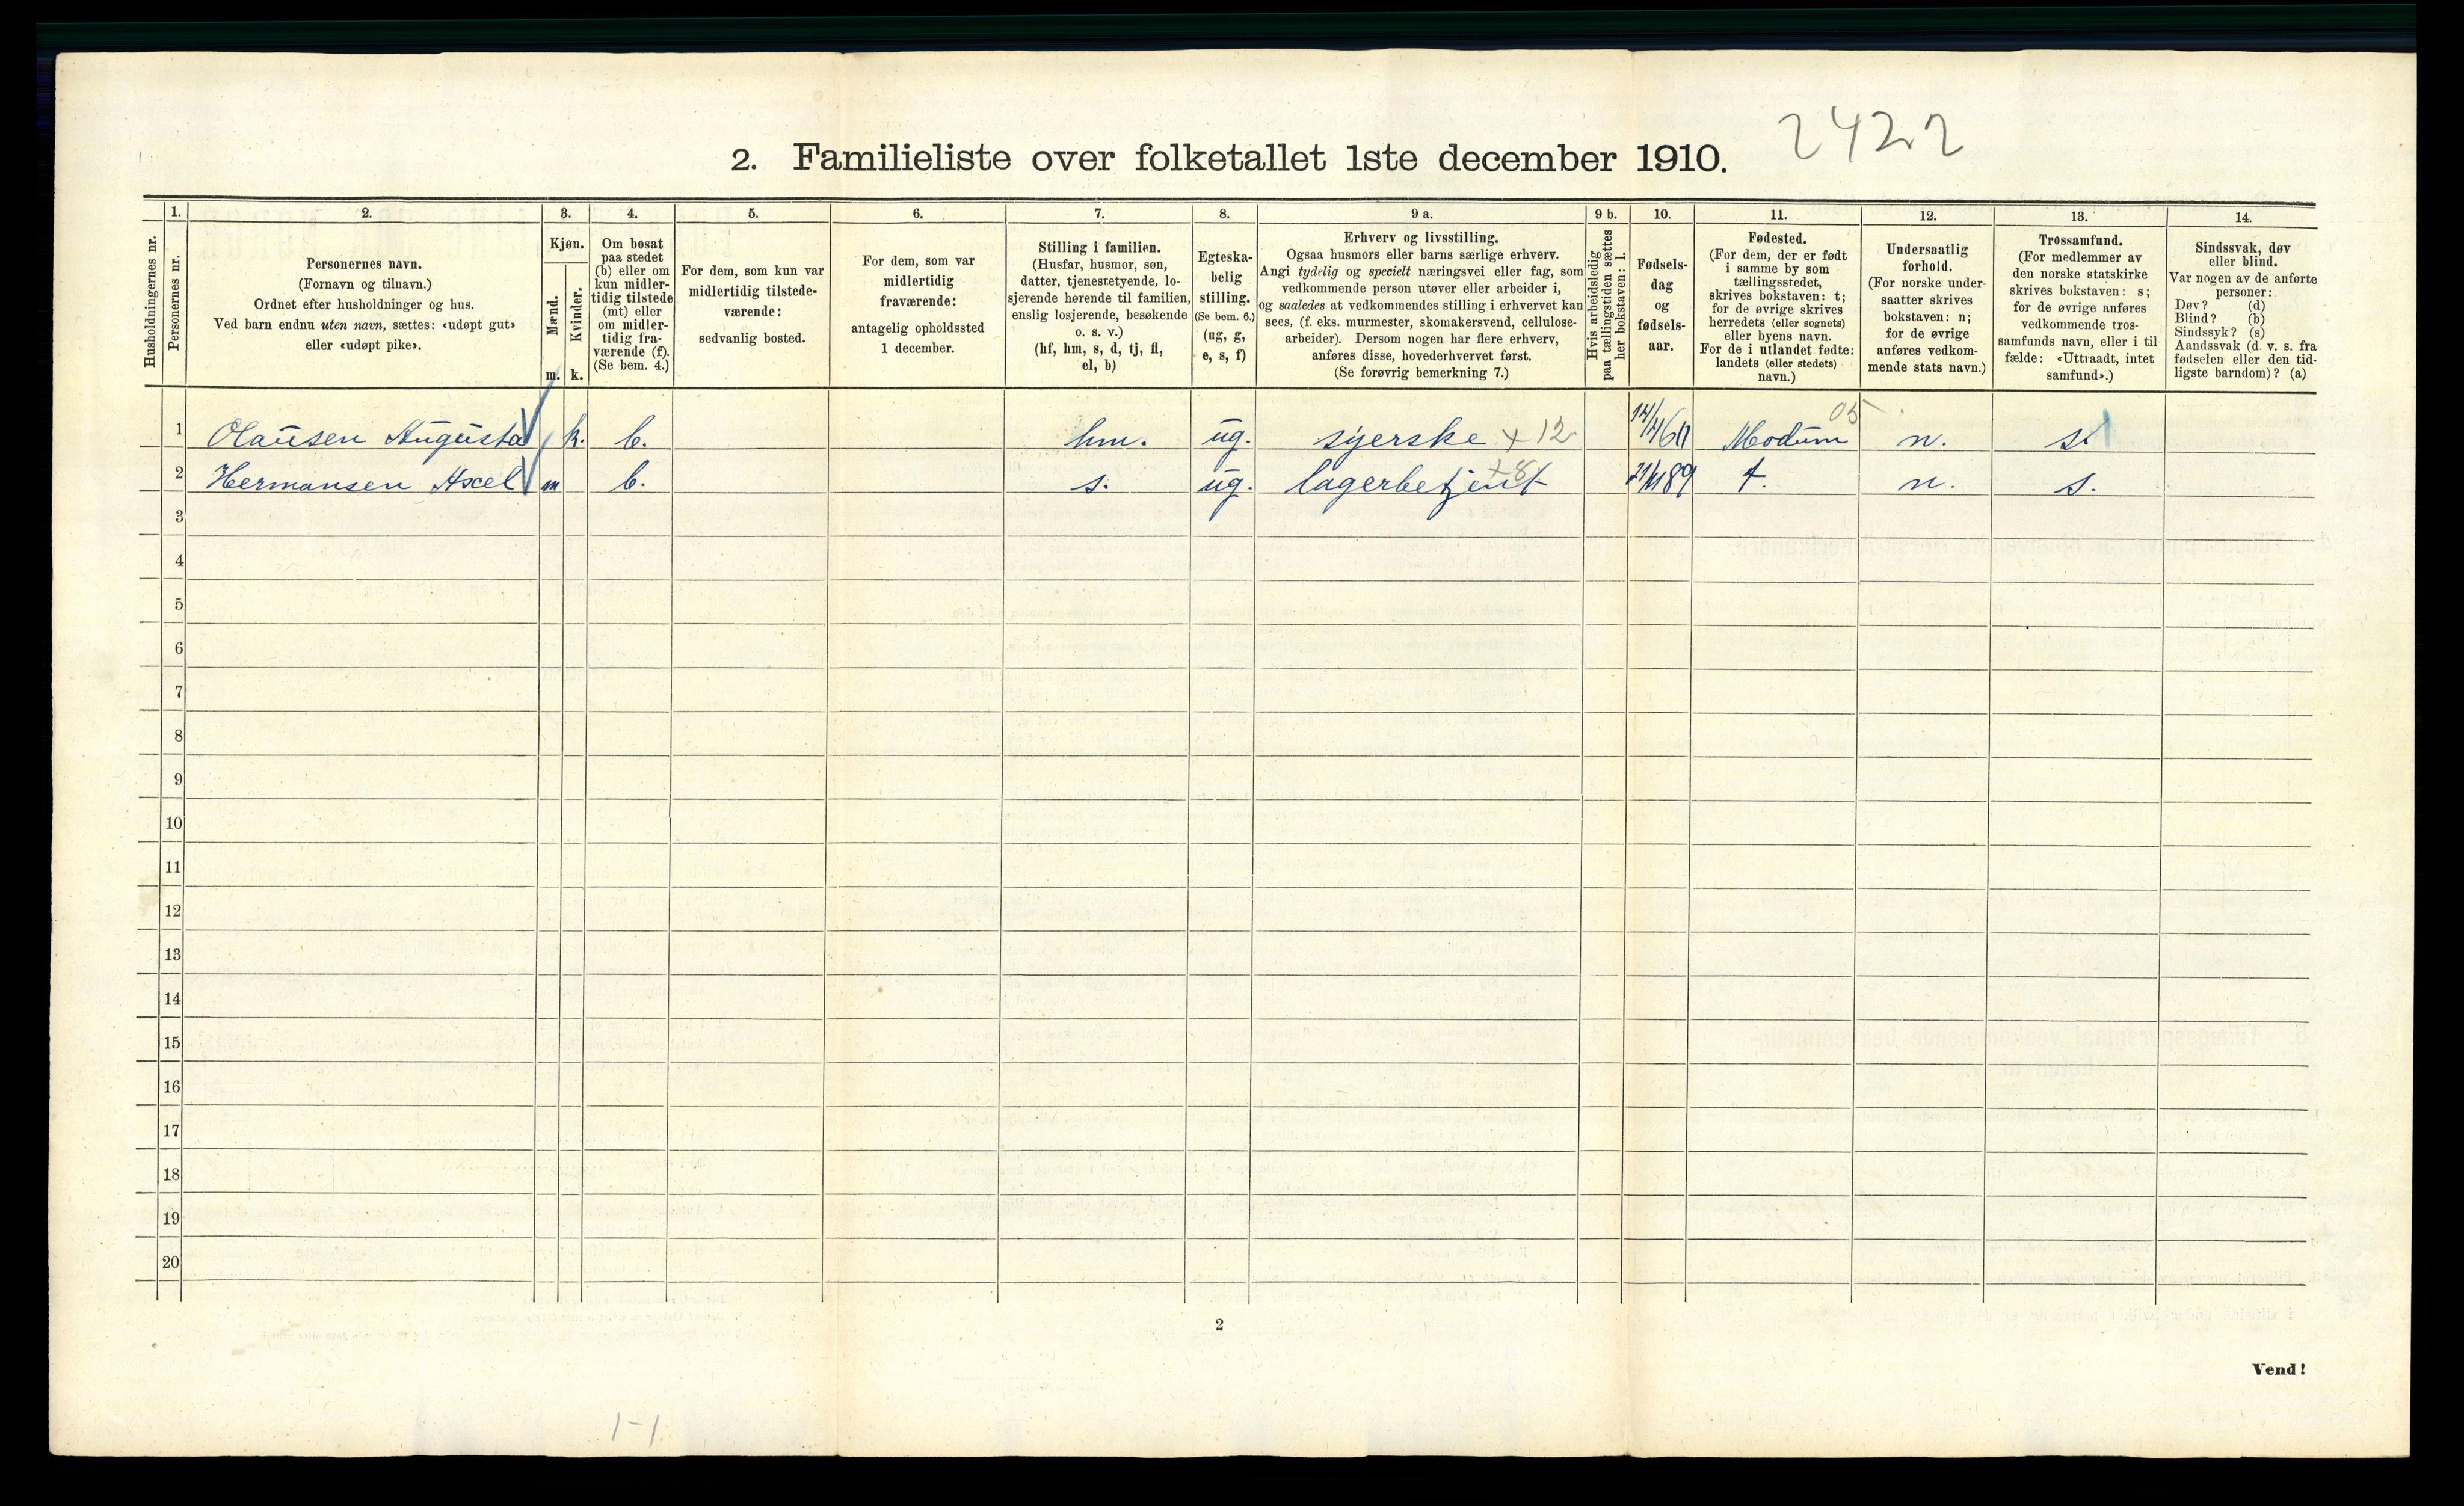 2422
2. Familieliste over folketallet 1ste december 1910.
1. 2. 3. 4. 5. 6. 7. 8. 9 a. 9 b. 10. 11. 12. 13. 14.
Husholdningernes nr.
Personernes nr.
Personernes navn.
(Fornavn og tilnavn.)
Ordnet efter husholdninger og hus.
Ved barn endnu uten navn, sættes: «udøpt gut»
eller «udøpt pike».
Kjøn.
Mænd.
m.
Kvinder.
k.
Om bosat
paa stedet
(b) eller om
kun midler-
tidig tilstede
(mt) eller
om midler-
tidig fra-
værende (f).
(Se bem. 4.)
For dem, som kun var
midlertidig tilstede-
værende:
sedvanlig bosted.
For dem, som var
midlertidig
fraværende:
antagelig opholdssted
1 december.
Stilling i familien.
(Husfar, husmor, søn,
datter, tjenestetyende, lo-
sjerende hørende til familien,
enslig losjerende, besøkende
o. s. v.)
(hf, hm, s, d, tj, fl,
el, b)
Egteska-
belig
stilling.
(Se bem. 6.)
(ug, g,
e, s, f)
Erhverv og livsstilling.
Ogsaa husmors eller barns særlige erhverv.
Angi tydelig og specielt næringsvei eller fag, som
vedkommende person utøver eller arbeider i,
og saaledes at vedkommendes stilling i erhvervet kan
sees, (f. eks. murmester, skomakersvend, cellulose-
arbeider). Dersom nogen har flere erhverv,
anføres disse, hovederhvervet først.
(Se forøvrig bemerkning 7.)
Hvis arbeidsledig
paa tællingstiden sættes
her bokstaven: l.
Fødsels-
dag
og
fødsels-
aar.
Fødested.
(For dem, der er født
i samme by som
tællingsstedet,
skrives bokstaven: t;
for de øvrige skrives
herredets (eller sognets)
eller byens navn.
For de i utlandet fødte:
landets (eller stedets)
navn.)
Undersaatlig
forhold.
(For norske under-
saatter skrives
bokstaven: n;
for de øvrige
anføres vedkom-
mende stats navn.)
Trossamfund.
(For medlemmer av
den norske statskirke
skrives bokstaven: s;
for de øvrige anføres
vedkommende tros-
samfunds navn, eller i til
fælde: «Uttraadt, intet
samfund».)
Sindssvak, døv
eller blind.
Var nogen av de anførte
personer:
Døv? (d)
Blind? (b)
Sindssyk? (s)
Aandssvak (d. v. s. fra
fødselen eller den tid-
ligste barndom)? (a)
1 Olaüsen Aügüsta k. b. hm. üg. syerske + 12 Modüm 05 n. s.
2 Hermansen Axel m b. s. üg. lagerbetjent +8 t. n. s.
3
4
5
6
7
8
9
10
11
12
13
14
15
16
17
18
19
20
2
Vend!
1-1